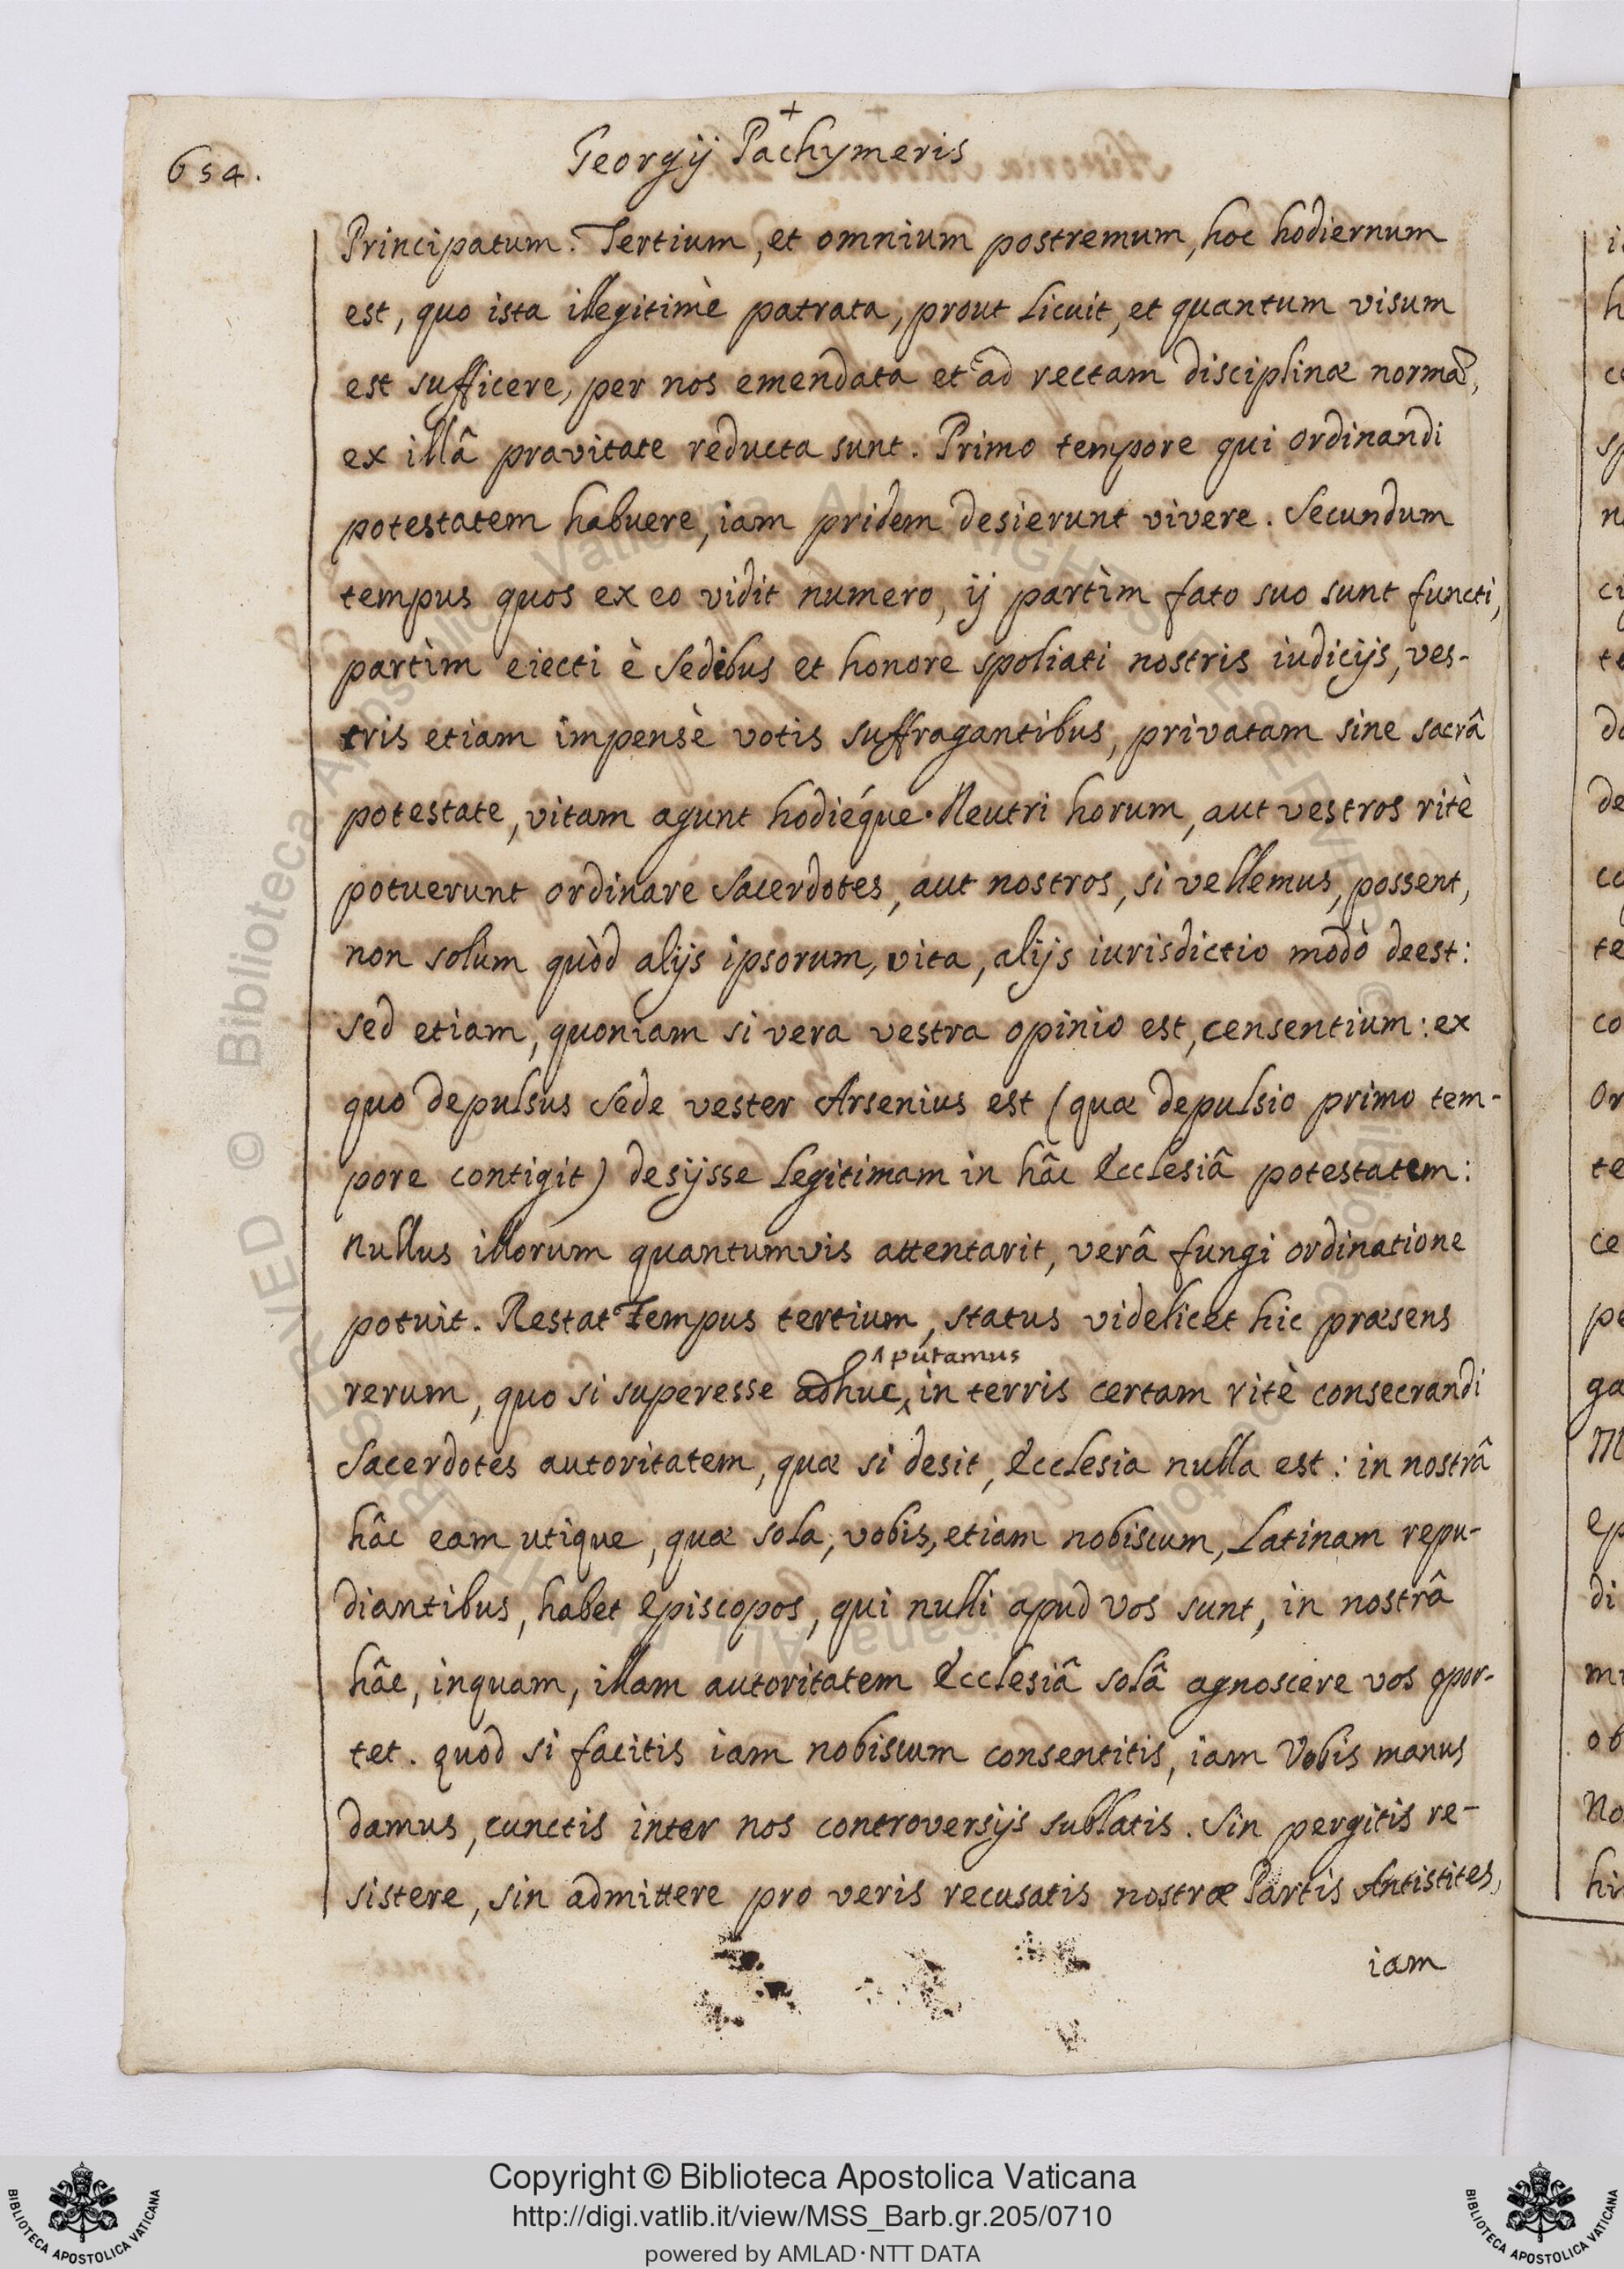 654.
+
Georgij Pachymeris
Principatum. Tertium, et omnium postremum, hoc hodiernum
est, quo ista illegitimè patrata, prout licuit, et quantum visum
est sufficere, per nos emendata et ad rectam disciplinæ normã,
ex illâ pravitate reducta sunt. Primo tempore qui ordinandi
potestatem habuere, iam pridem desierunt vivere. Secundum
tempus quos ex eo vidit numero, ij partìm fato suo sunt functi,
partìm eiecti è Sedibus et honore spoliati nostris iudicijs, ves-
tris etiam impensè votis suffragantibus, privatam sine sacrâ
potestate, vitam agunt hodiéque. Neutri horum, aut vestros ritè
potuerunt ordinare Sacerdotes, aut nostros, si vellemus, possent,
non solùm quòd alijs ipsorum, vita, alijs iurisdictio modò deest:
sed etiam, quoniam si vera vestra opinio est, censentium: ex
quo depulsus Sede vester Arsenius est (quæ depulsio primo tem-
pore contigit) desijsse legitimam in hâc Ecclesiâ potestatem:
nullus illorum quantumvis attentarit, verâ fungi ordinatione
potuit. Restat Tempus tertium, status videlicet hic præsens
putamus
rerum, quo si superesse adhuc, in terris certam ritè consecrandi
Sacerdotes autoritatem, quæ si desit, Ecclesia nulla est: in nostrâ
hâc eam utique, quæ sola, vobis, etiam nobiscum, Latinam repu-
diantibus, habet Episcopos, qui nulli apud vos sunt, in nostrâ
hâc, inquam, illam autoritatem Ecclesiâ solâ agnoscere vos opor-
tet. quod si facitis iam nobiscum consentitis, iam Vobis manus
damus, cunctis inter nos controversijs sublatis. Sin pergitis re-
sistere, sin admittere pro veris recusatis nostræ Partis Antistites,
iam
Copyright © Biblioteca Apostolica Vaticana
http://digi.vatlib.it/view/MSS_Barb.gr.205/0710
powered by AMLAD·NTT DATA
BIBLIOTECA APOSTOLICA VATICANA
BIBLIOTECA APOSTOLICA VATICANA